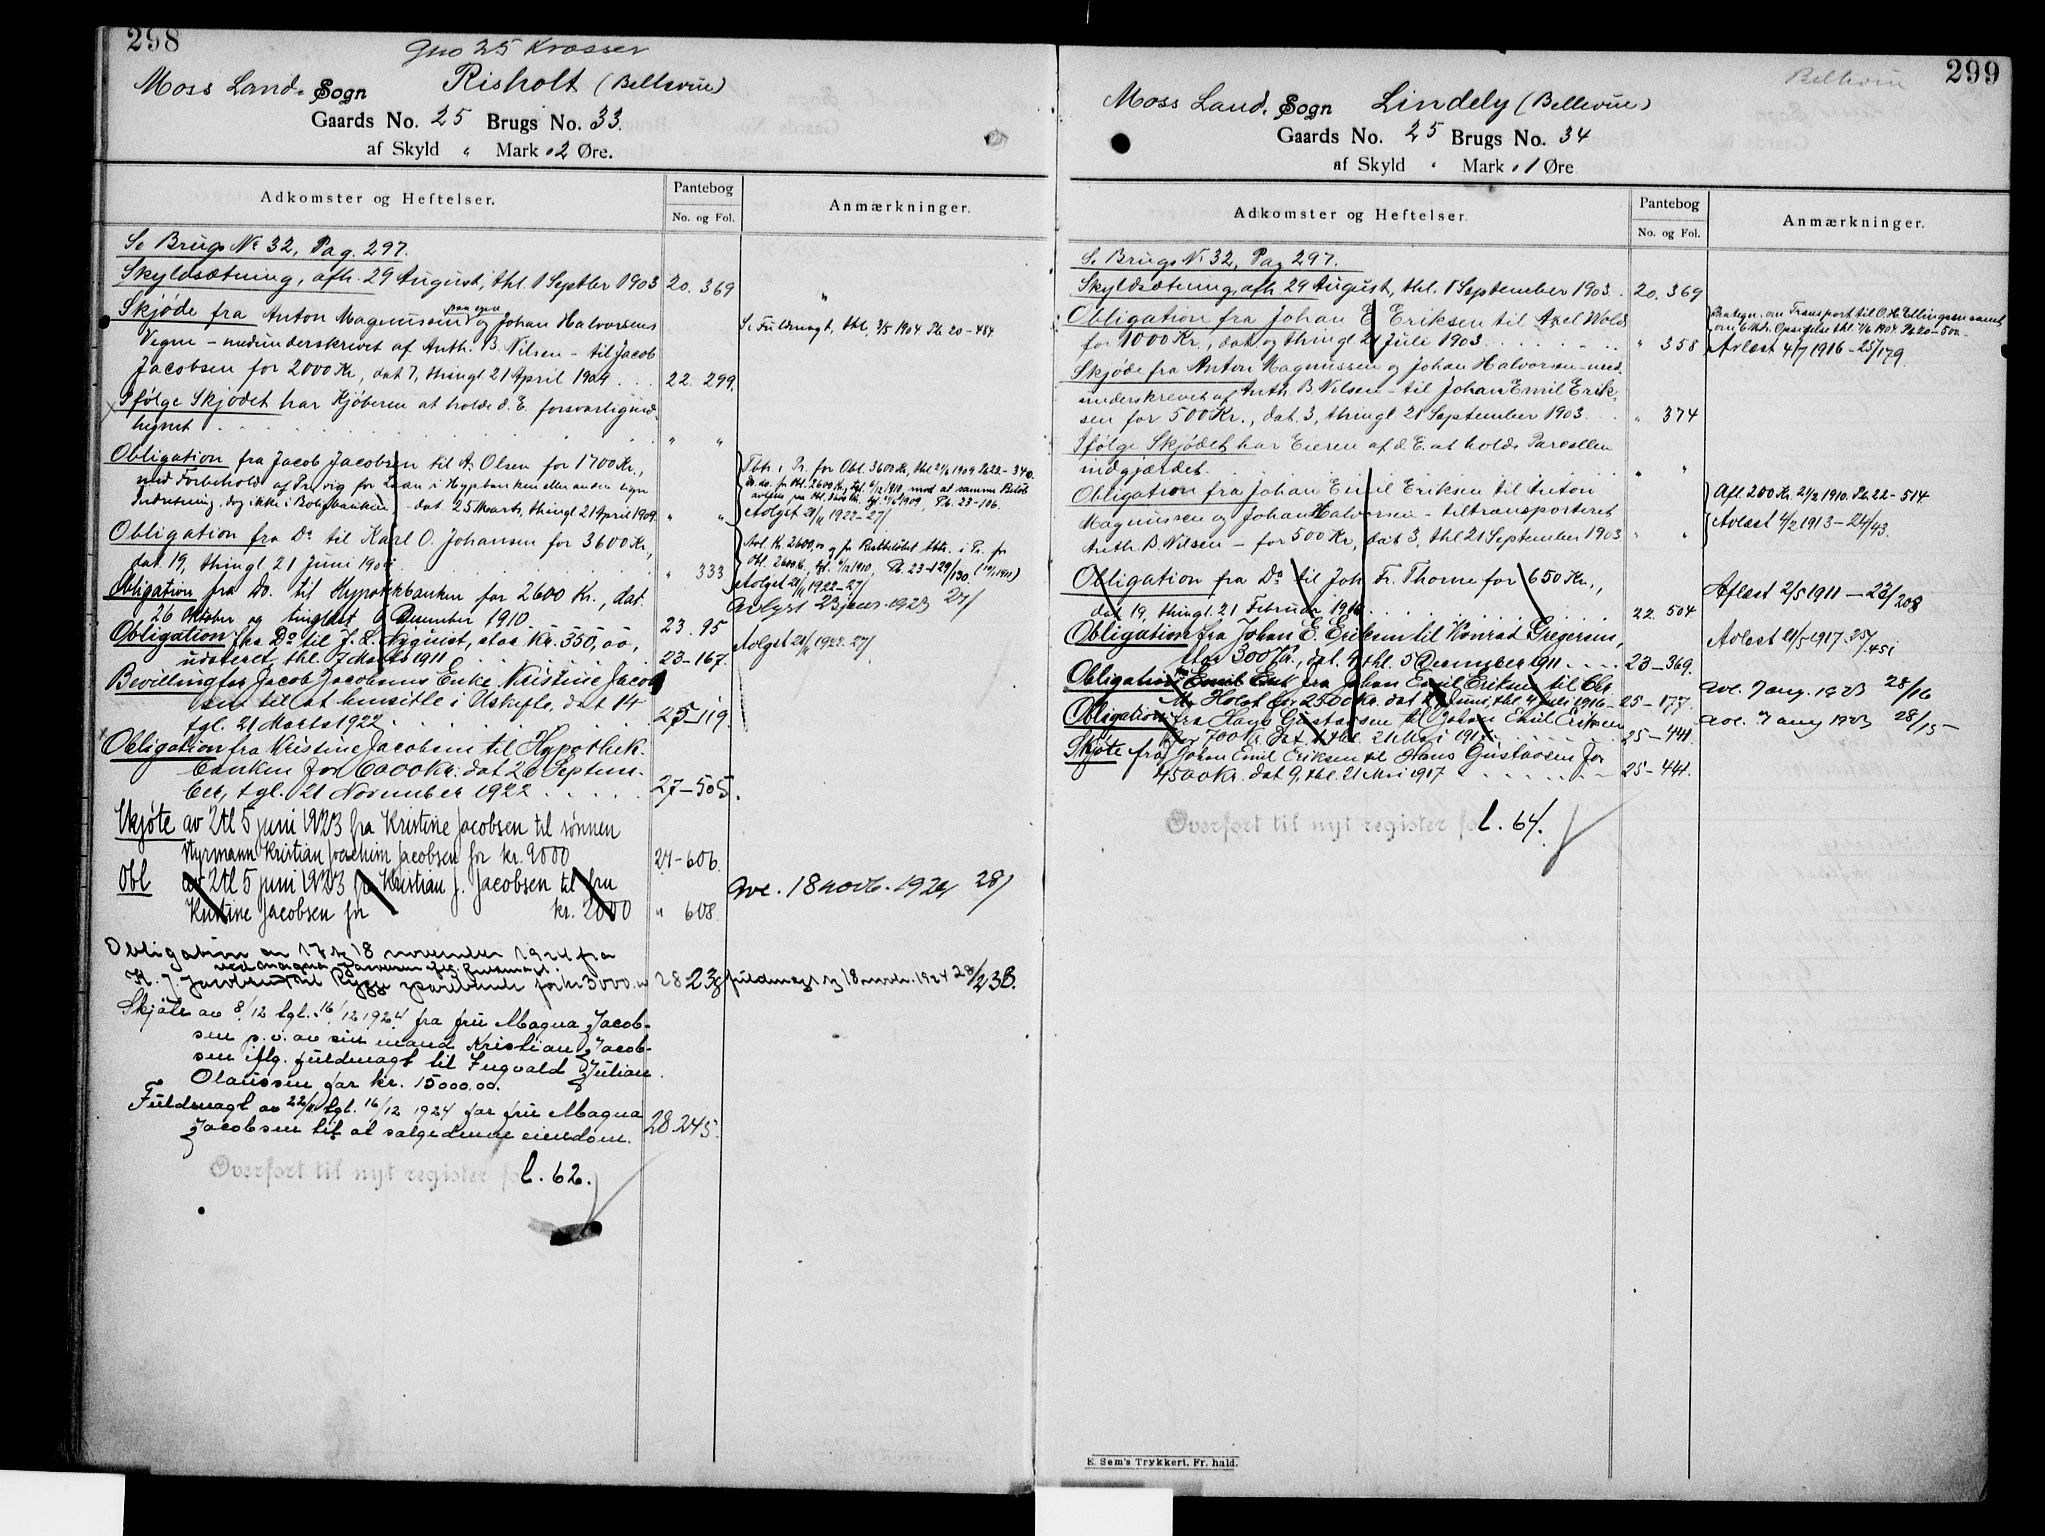 298
Gno 25 Krosser
Moss Land. Sogn Risholt (Bellevue)
Gaards No. 25 Brugs No. 33.
af Skyld " Mark 02 Øre.
Adkomster og Heftelser.
Pantebog
No. og Fol.
Anmærkninger.
Se Brugs No 32, Pag. 297.
Skyldsætning, afh. 29 August, thl. 1 Septbr 1903 20. 369
Skjøde fra Anton Magnussen paa egne og Johan Halvorsens
Vegne - medunderskrevet af Anth. B. Nilsen - til Jacob
Jacobsen for 2000 Kr, dat 7, thingl 21 April 1909 . . . 22. 299.
Se Fuldmagt, thl 3/5 1904 Pb. 20 - 484
Ifølge Skjødet har Kjøberen at holde d. E. forsvarlig ind-
hegnet . . . " "
Obligation fra Jacob Jacobsen til A. Olsen for 1700 Kr.,
med Forbehold af Pr. vig for Laan i Hypbanken eller anden lign
Indretning, dog ikke i Boligbanken - dat. 25 Marts, thingl 21 April 1909 " "
Tbtr. i Pr. for Obl. 3600 Kr, thl 21/6 1909 Pb 22 - 340.
Avlyst 21/11 1922 - 27/
Obligation fra Do til Karl O. Johansen for 3600 Kr,
dat. 19, thingl 21 Juni 1909 . . . " 333
Avlyst 21/11 1922 - 27/
Obligation fra Do. til Hypothekbanken for 2600 Kr., dat.
26 Oktober og tinglæst 6 December 1910. 23. 95
avlyst 23 januar 1923 27/
Obligation fra Do til J. L. Nyquist, stor Kr. 350,00,
udateret, thl. 7 Marts 1911 . . . 23 - 167.
Avlyst 21/11 1922. 27/
Bevilling for Jacob Jacobsens Enke Kristine Jacob
sen til at hensitte i Uskifte, dat 14
tgl. 21 Marts 1922 . . . 25 - 119.
Obligation fra Kristine Jacobsen til Hypothek-
banken for 6000 Kr. dat 26 Septem-
ber, tgl. 21 November 1922 . . . 27 - 505.
Skjøte av 2 tl 5 juni 1923 fra Kristine Jacobsen til sønnen
Styrmann Kristian Joachim Jacobsen for kr. 9000 27 - 606.
Obl av 2 tl 5 juni 1923 fra Kristian J. Jacobsen til fru
Kristine Jacobsen for kr. 2000 " 608.
ave. 18 novb. 1924 28/
Obligation av 17 tg 18 november 1924 fra
K. J. Jacobsen til Rygge sparebank for kr 3000. 28 238
fuldmagt tg 18 novbr. 1924 28/238.
Skjøte av 8/12 tgl. 16/12 1924 fra fru Magna Jacob-
sen p.v. av sin mand Kristian Jacob-
sen iflg. fuldmagt til Ingvald Julian
Olaussen for kr. 15000,00.
Fuldmagt av 22/11 tgl. 16/12 1924 for fru Magna
Jacobsen til at sælge denne eiendom. 28 245.
Overført til nyt register fol. 62.
Bellevue 299
Moss Land. Sogn Lindely (Bellevue)
Gaards No. 25 Brugs No. 34
af Skyld " Mark 01 Øre
Adkomster og Heftelser.
Pantebog
No. og Fol.
Anmærkninger.
Se Brugs No 32, Pag 297.
Skyldsætning, afh. 29 August, thl. 1 September 1903. 20. 369
Obligation fra Johan E Eriksen til Axel Wold
for 1000 Kr., dat. og thingl 21 Juli 1903 . . . " 358
Paategn. om Transport til O. H. Ellingsen samt
om 6 Mdr. Opsigelse thl. 7/6 1904. Pb 20 - 500.
Avlæst 4/7 1916 - 25/179.
Skjøde fra Anton Magnussen og Johan Halvorsen - med-
underskrevet af Anth. B. Nilsen - til Johan Emil Erik-
sen for 500 Kr., dat. 3, thingl 21 September 1903 . . " 374
Ifølge Skjødet har Eieren af d. E. at holde Parcellen
indgjærdet . . . " "
Obligation fra Johan Emil Eriksen til Anton
Magnussen og Johan Halvorsen - tiltransporteret
Anth. B. Nilsen - for 500 Kr, dat 3, thl 21 September 1903 " "
Afl 200 Kr. 2/2 1910. Pb. 22 - 514
Avlæst 4/2 1913 - 24/43.
Obligation fra Do til Joh. Fr. Thorne for 650 Kr.,
dat 19, thingl. 21 Februar 1910 . . . 22. 504
Aflæst 2/5 1911 - 23/208
Obligation fra Johan E. Eriksen til Konrad Gregersen,
stor 300 Kr., dat. 4, thl. 5 December 1911 . . . 23 - 369.
Avlæst 21/5 1917. 25/451
Obligation fra Johan Emil Eriksen til Chr.
M. Holst for 2500 Kr. dat 27 Juni, thl. 4 Juli 1916 - 25 - 177.
ave. 7 aug. 1923 28/16
Obligation fra Hans Gustavsen til Johan Emil Eriksen
for 700 Kr, dat. 9, thl. 21 Mai 1917 . . . 25 - 441.
ave. 7 aug 1923 28/15
Skjøte fra Johan Emil Eriksen til Hans Gustavsen for
4500 Kr. dat 9, thl. 21 Mai 1917 . . . 25 - 441.
Overført til nyt register fol. 64.
E. Sem's Trykkeri. Fr. hald.